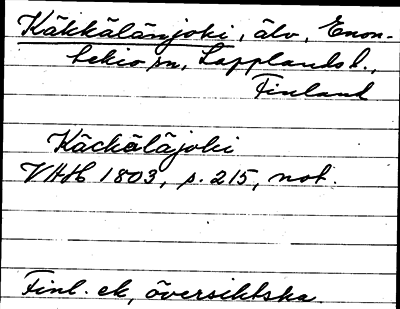 Käkkälänjoki, älv, Enon-
tekiö sn, Lapplands l.,
Finland
Käckäläjoki
VAH 1803, s. 215, not.
Finl. ek. översiktska.